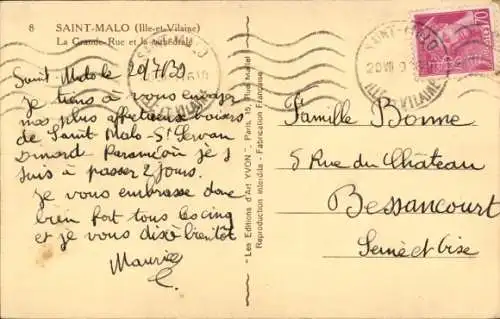 8 SAINT-MALO (Ille-et-Vilaine)
La Grande-Rue et la cathédrale
Saint Malo le 29/7/39
Je tiens à vous envoyer
mes plus affectueux baisers
de Saint Malo - St Servan
Dinard - Paramé où je
suis à passer 2 jours.
Je vous embrasse donc
bien fort tous les cinq
et je vous dis à bientôt
Maurice
- Les Editions d'Art YVON", Paris, 15, Rue Martel
Reproduction interdite - Fabrication Française
SAINT-MALO
ILLE ET VILAINE
70
Famille Bonne
5 Rue du Château
Bessancourt
Seine et Oise